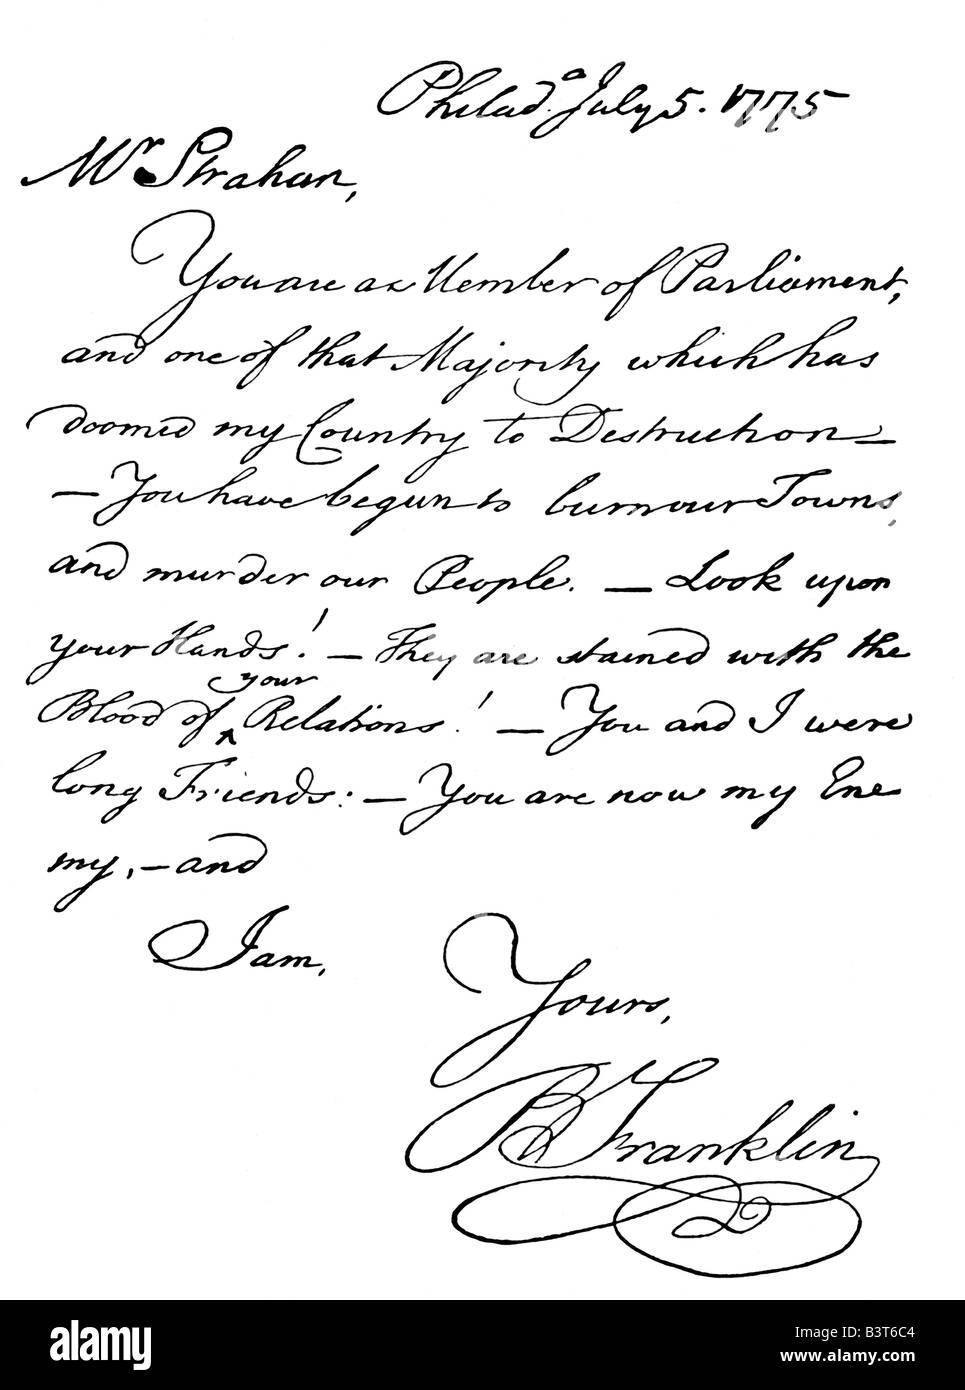 Philad.ª July 5. 1775
Mr Strahan,
You are a Member of Parliament,
and one of that Majority which has
doomed my Country to Destruction—
— You have begun to burn our Towns,
and murder our People. — Look upon
your Hands! — They are stained with the
your
Blood of ‸ Relations! — You and I were
long Friends: — You are now my Ene
my, — and
I am,
Yours,
B Franklin
alamy
alamy
Image ID: B3T6C4
www.alamy.com